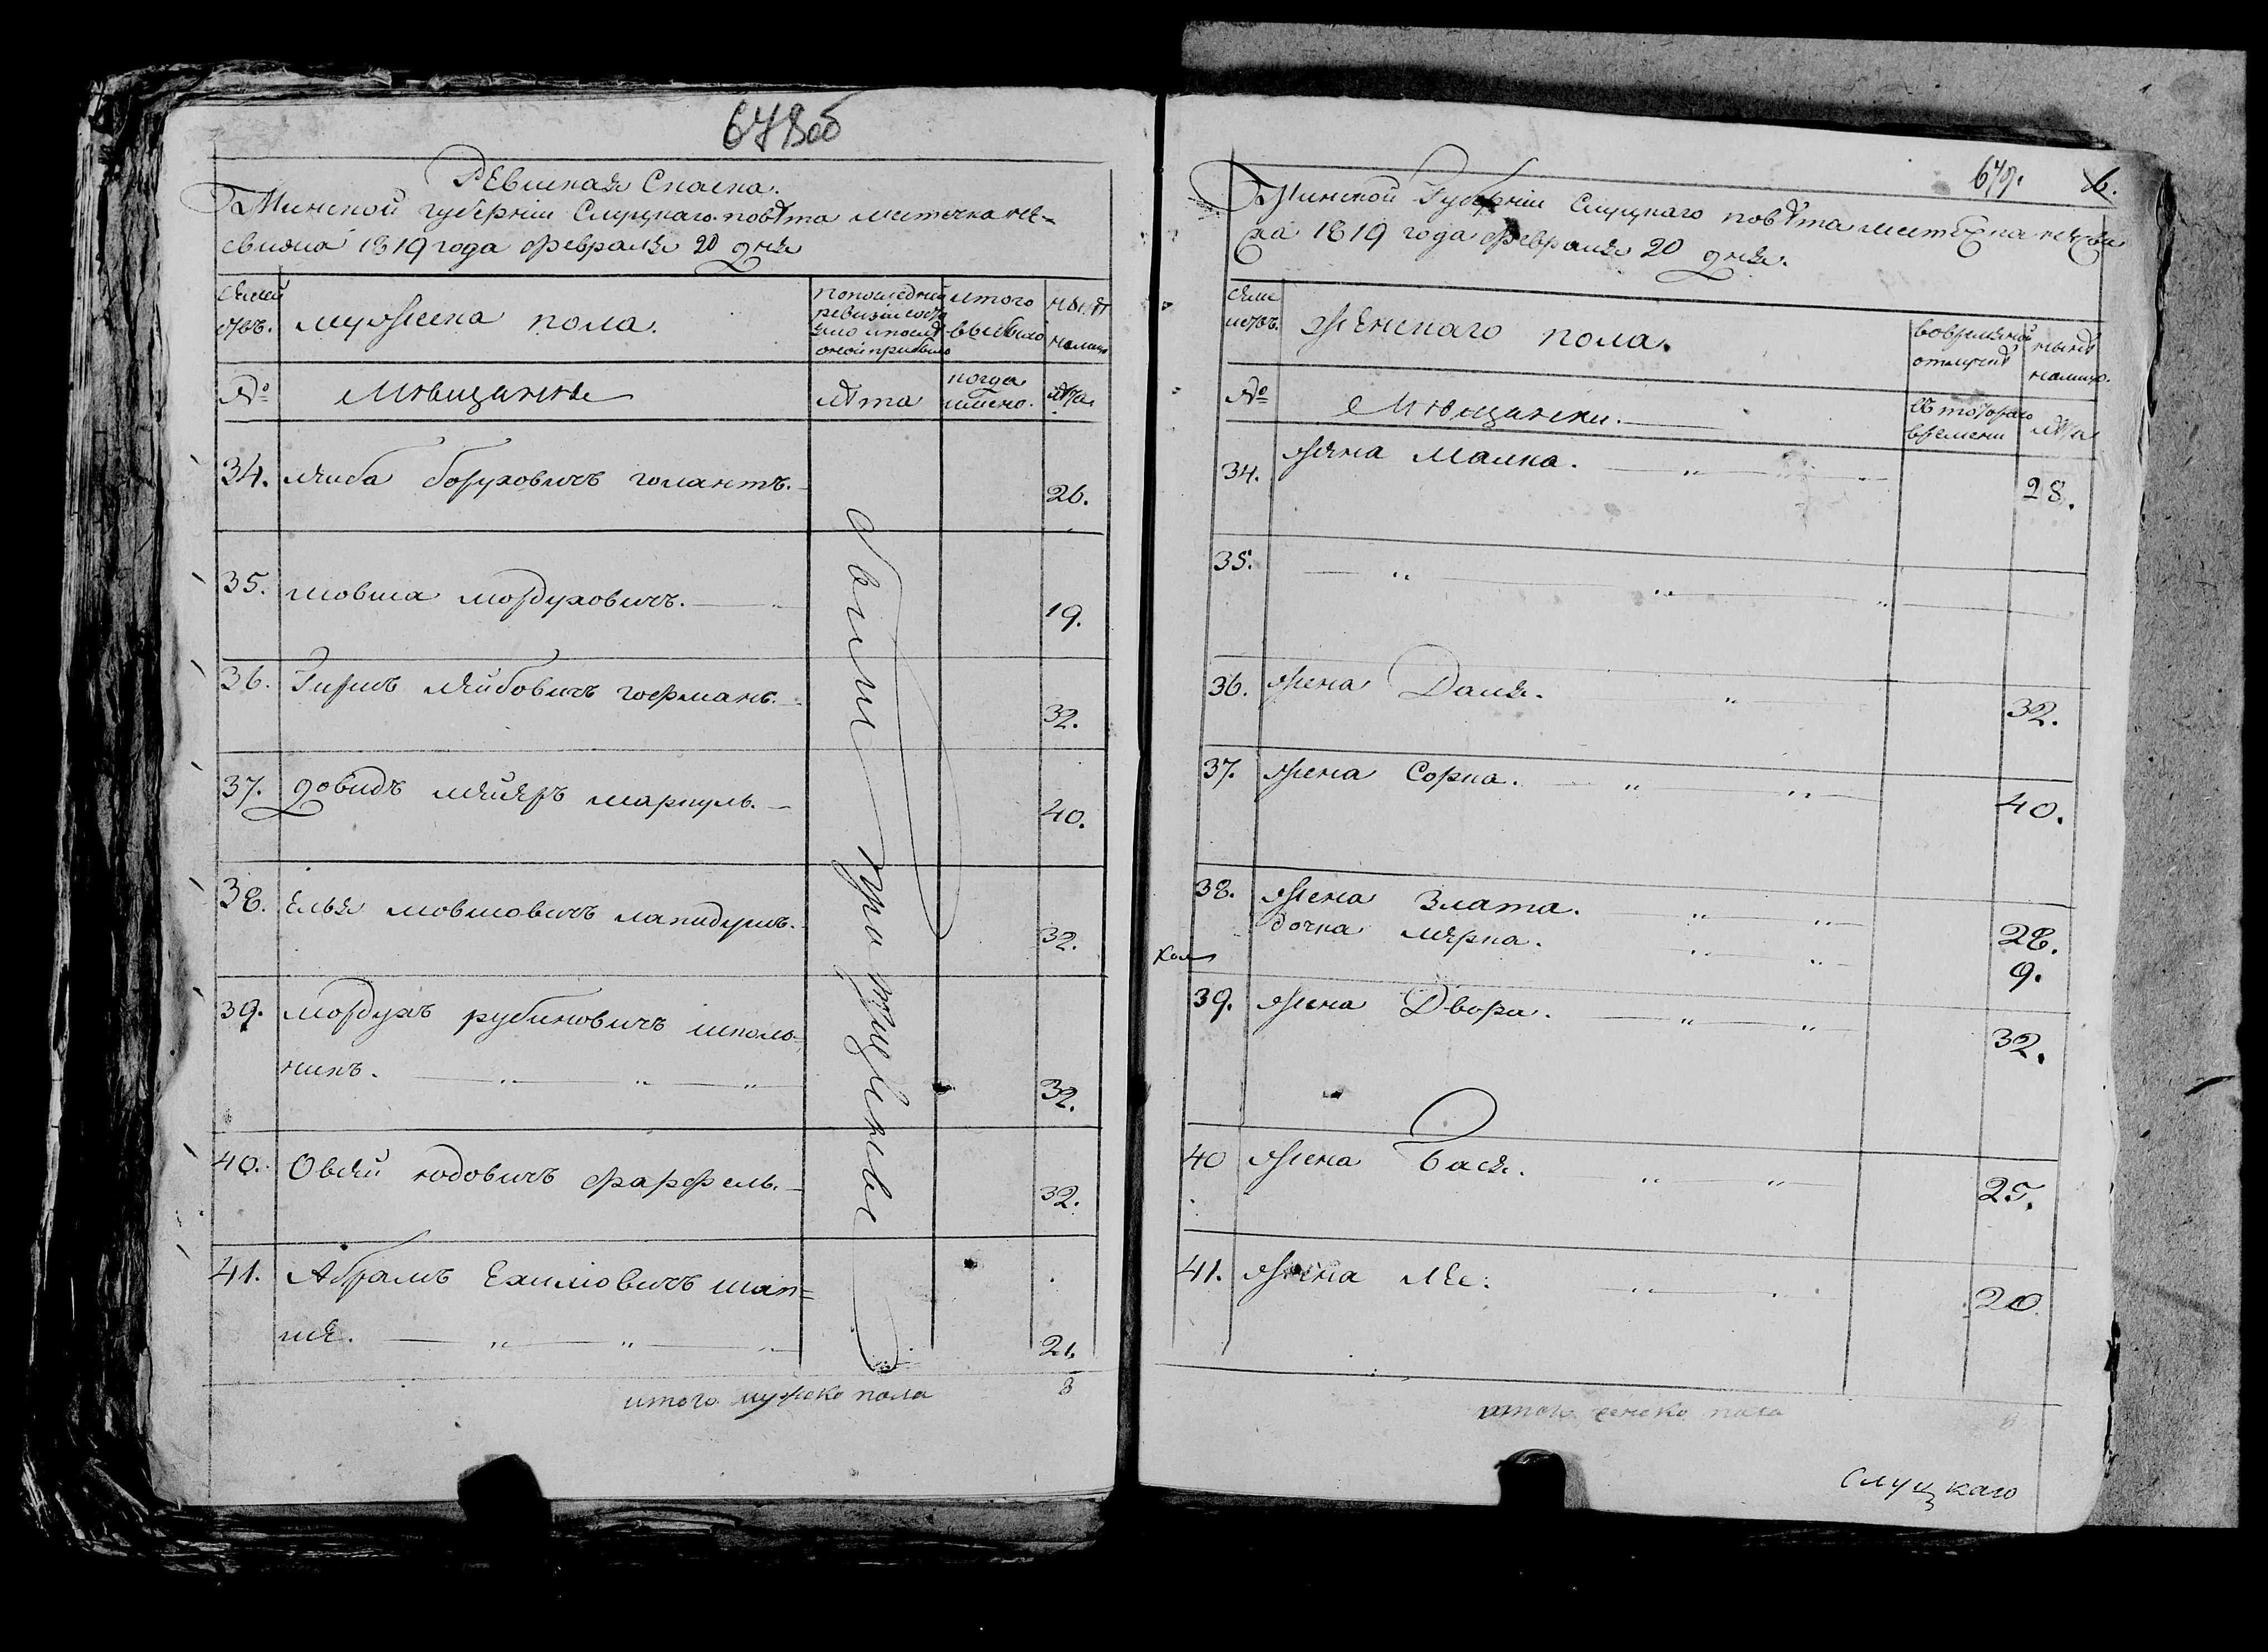 678об
Ревиская Скаска.
Минской губерніи Слуцкаго повѣта месточка не-
свижа 1819 года февраля 20 дня
мужеска пола.
попоследней
ревизіи состо
яло ипослѣ
оной прибыло
итого
выбыло
нынѣ
налицо
№
Мѣщанѣ
лѣта
когда
имено.
лѣта
34. лейба боруховичъ голантъ.
26.
35. мовша мордуховичъ.
19.
36. Гиршъ лейбовичъ гофманъ.
32.
37. довидъ мейеръ маркуль.
40.
38. елья мовшовичъ лапидушъ.
32.
39. мордухъ рубиновичъ школь-
никъ.
32.
40. Овсей юдовичъ фарфель.
32.
41. Абрамъ Ехиловичъ шап=
ша.
21.
вели пропущение
итого мужско пола 8
679. 6.
Минской Губерніи Слуцкаго повѣта местечка несви
жа 1819 года февраля 20 дня.
женскаго пола.
вовременой
отлучкѣ
нынѣ
налицо.
№
Мѣщански.
съ котораго
времени
лѣта
34. жена Малка.
28.
35.
36. жена Даня.
32.
37. жена Сорка.
40.
38. жена Злата.
28.
дочка мерка.
9.
39. жена Двора.
32.
40 жена Бася.
25.
41. жена Лея.
20.
итого женско пола 8
Слуцкаго